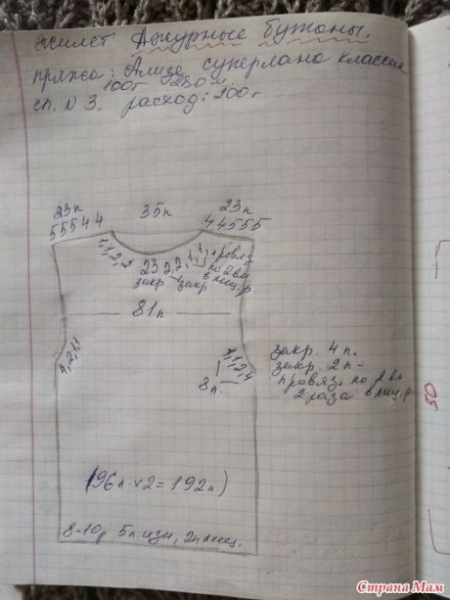 жилет Ажурные бутоны.
пряжа: Ализе суперлана классик
100г 280м.
сп. N 3. расход: 200г
23п 35п 23п
55544 44555
1,1,2,2 23 2,2, 1,1, провяз
закр закр по 2 вм
в лиц.р.
81п
4,2,1,1 1,1,2,4
8п.
закр. 4 п.
закр. 2п -
провяз. по 2 вм
2 раза в лиц.р.
50
(96п x2=192п)
8-10р 5п.изн, 2п лиц.
Страна Мам